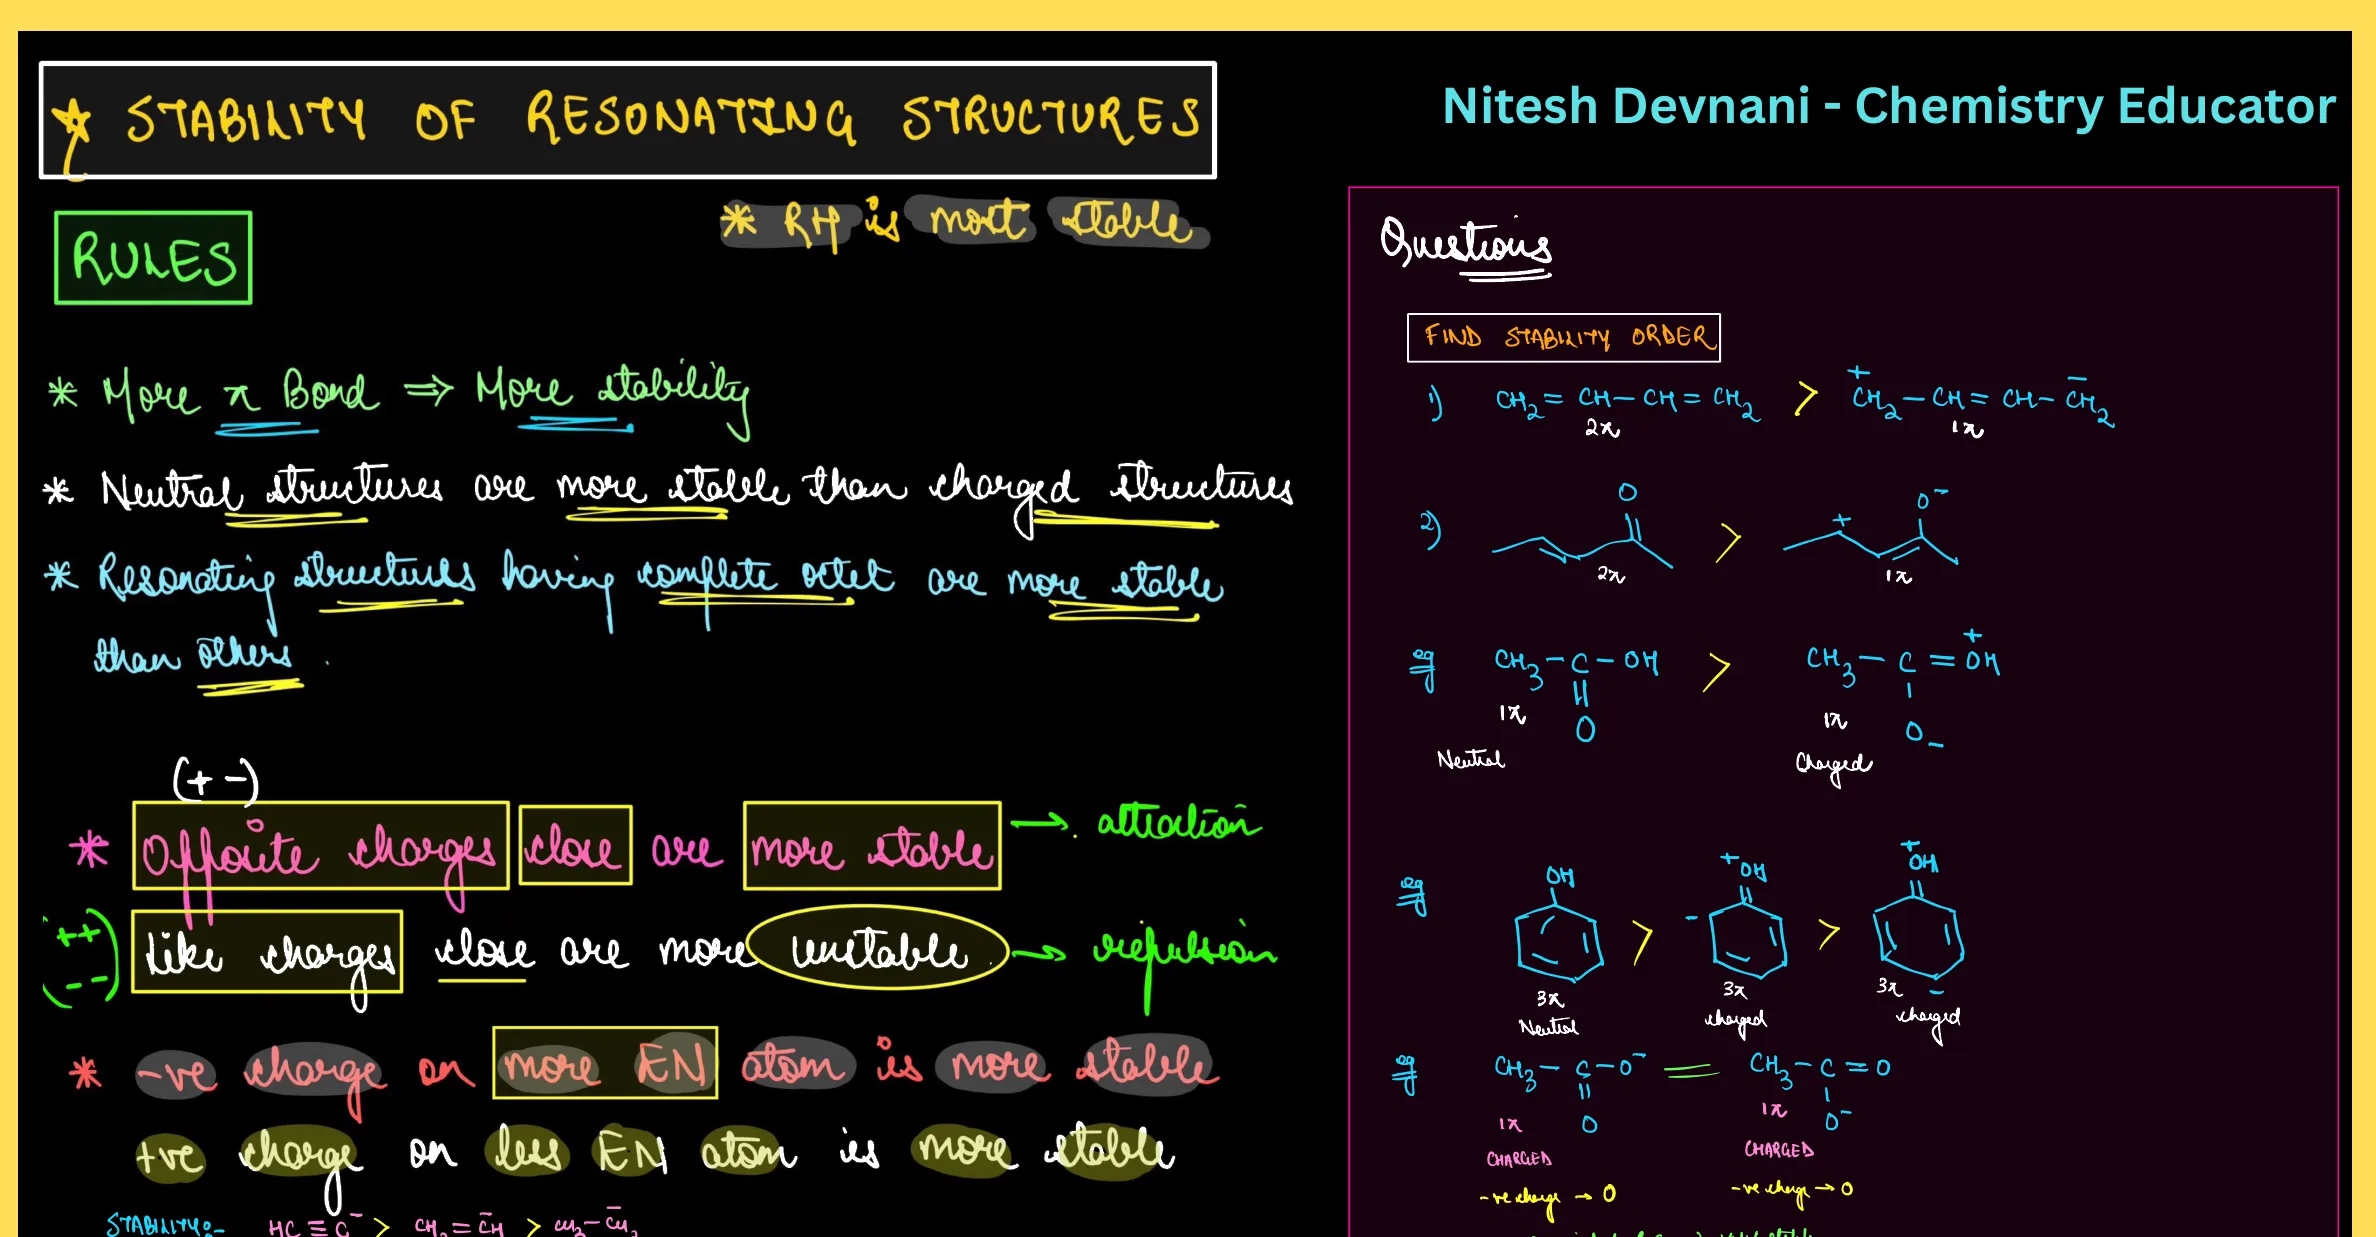 ★ STABILITY OF RESONATING STRUCTURES
Nitesh Devnani - Chemistry Educator
* RH is most stable
RULES
* More π Bond ⇒ More stability
* Neutral structures are more stable than charged structures
* Resonating structures having complete octet are more stable
than others.
(+ -)
* Opposite charges close are more stable → attraction
(++)
(--)
Like charges close are more unstable. → repulsion
* -ve charge on more EN atom is more stable
+ve charge on less EN atom is more stable
STABILITY:- HC≡C⁻ > CH₂=C̄H > CH₃-C̄H₂
Questions
FIND STABILITY ORDER
1) CH₂=CH-CH=CH₂ > C⁺H₂-CH=CH-C̄H₂
2π 1π
2) O > + O⁻
2π 1π
eg CH₃-C-OH > CH₃-C=O⁺H
1π O 1π O⁻
Neutral Charged
eg OH > +OH - > +OH
3π 3π 3π -
Neutral charged charged
eg CH₃-C-O⁻ = CH₃-C=O
1π O 1π O⁻
CHARGED CHARGED
-ve charge → O -ve charge → O